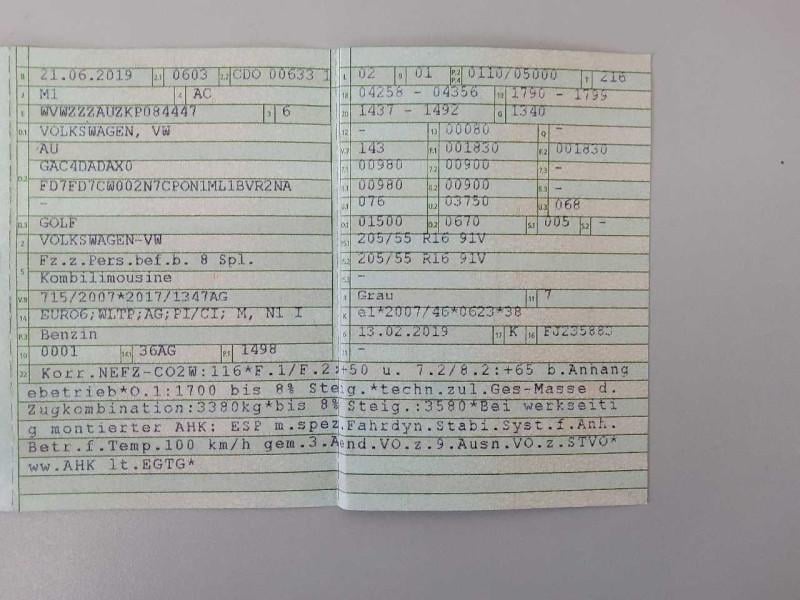 B 21.06.2019 2.1 0603 2.2 CDO 00633 1 L 02 9 01 P.2 P.4 0110/05000 T 216
J M1 4 AC 18 04258 - 04356 19 1790 - 1799
E WVWZZZAUZKP084447 3 6 20 1437 - 1492 G 1340
D.1 VOLKSWAGEN, VW 12 - 13 00080 Q -
AU V.7 143 F.1 001830 F.2 001830
D.2 GAC4DADAX0 7.1 00980 7.2 00900 7.3 -
FD7FD7CW002N7CPON1ML1BVR2NA 8.1 00980 8.2 00900 8.3 -
- U.1 076 U.2 03750 U.3 068
D.3 GOLF O.1 01500 O.2 0670 S.1 005 S.2 -
2 VOLKSWAGEN-VW 15.1 205/55 R16 91V
5 Fz.z.Pers.bef.b. 8 Spl. 15.2 205/55 R16 91V
Kombilimousine 15.3 -
V.9 715/2007*2017/1347AG R Grau 11 7
14 EURO6;WLTP;AG;PI/CI; M, N1 I K e1*2007/46*0623*38
P.3 Benzin 6 13.02.2019 17 K 16 FJ235883
10 0001 14.1 36AG P.1 1498 21 -
22 Korr.NEFZ-CO2W:116*F.1/F.2:+50 u. 7.2/8.2:+65 b.Anhang
ebetrieb*O.1:1700 bis 8% Steig.*techn.zul.Ges-Masse d.
Zugkombination:3380kg*bis 8% Steig.:3580*Bei werkseiti
g montierter AHK: ESP m.spez.Fahrdyn.Stabi.Syst.f.Anh.
Betr.f.Temp.100 km/h gem.3.Aend.VO.z.9.Ausn.VO.z.STVO*
ww.AHK lt.EGTG*